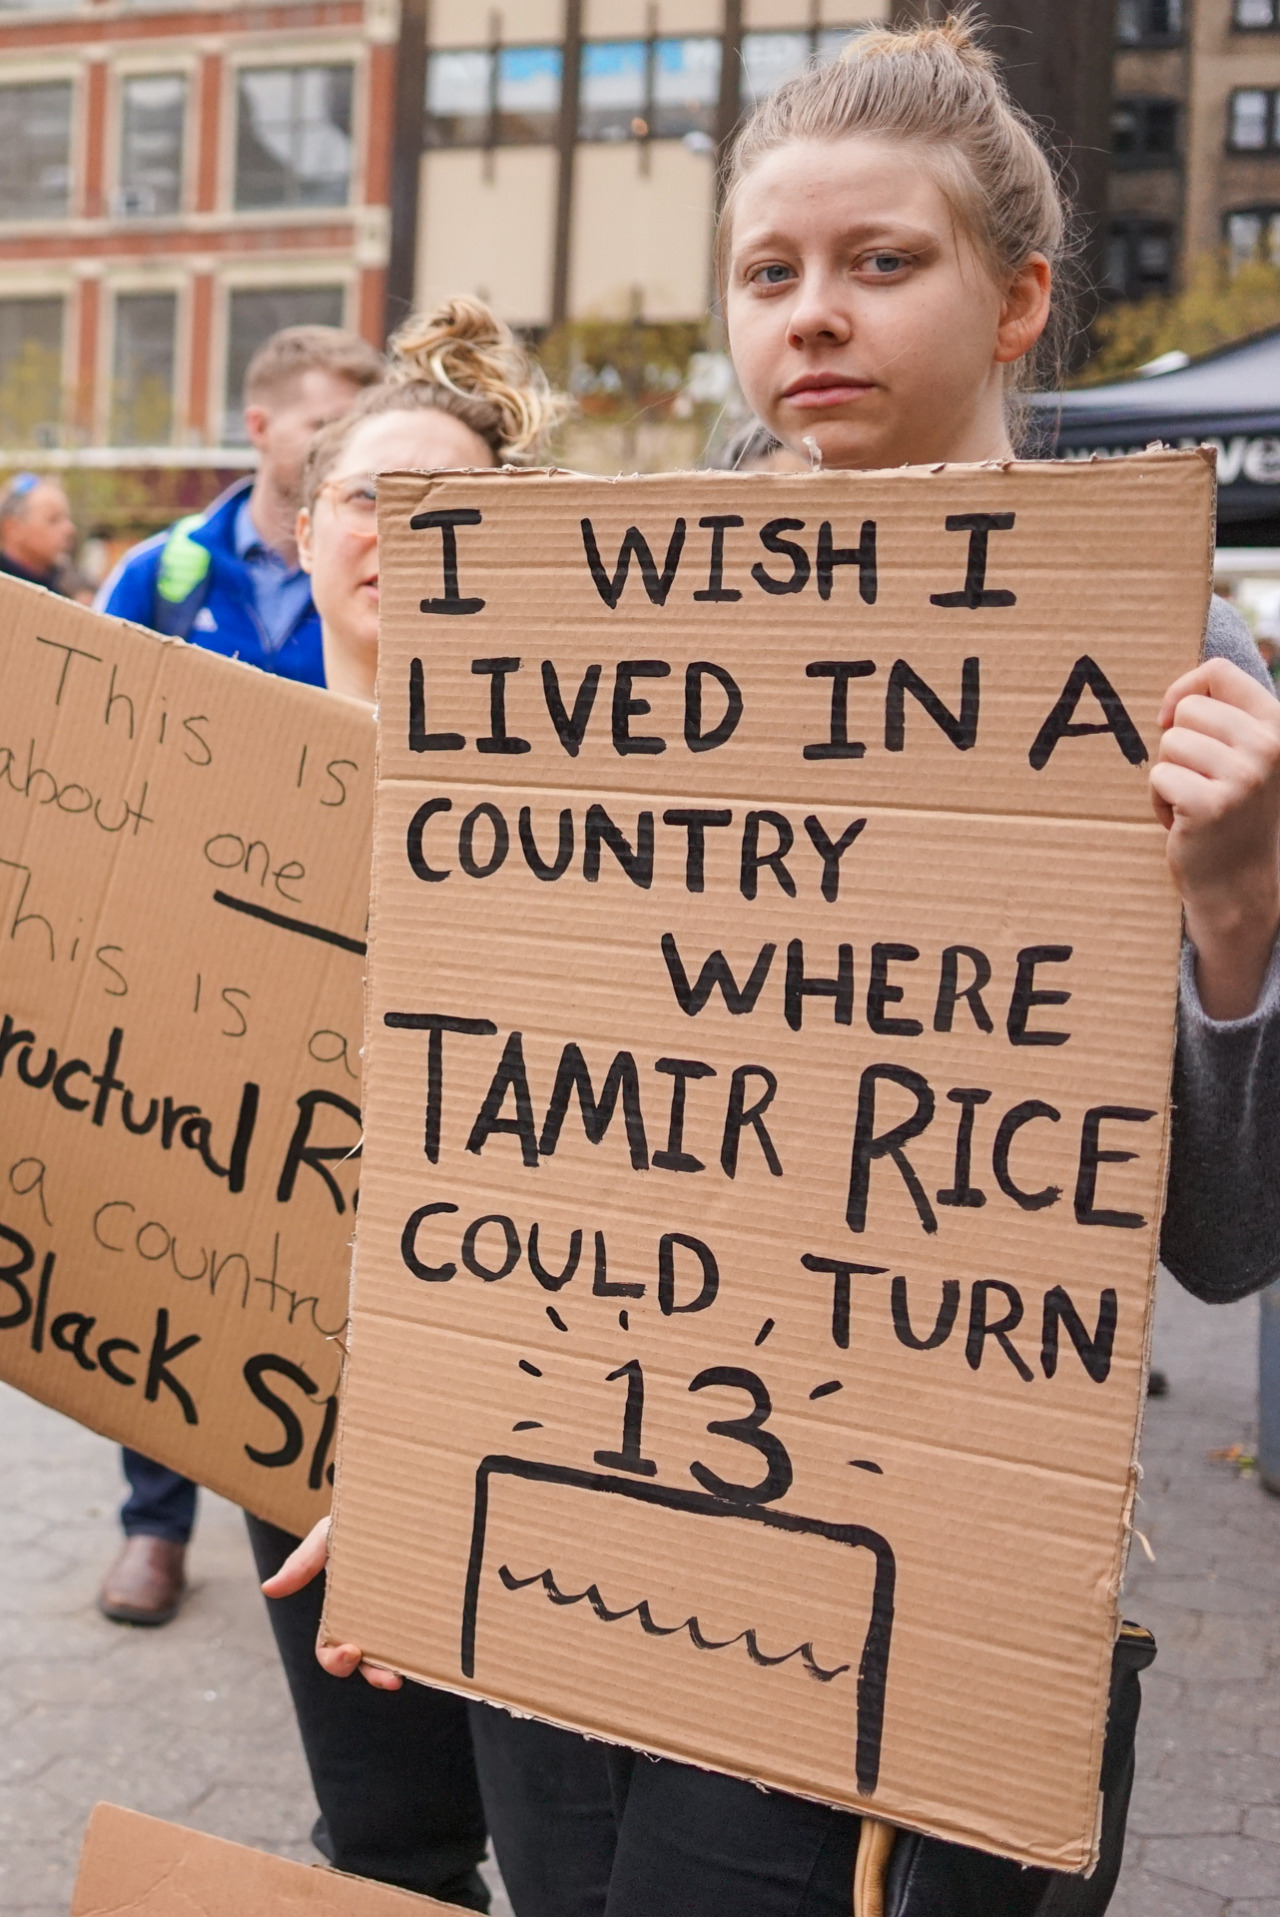 I WISH I
LIVED IN A
COUNTRY
WHERE
TAMIR RICE
COULD TURN
13
This is
about one
This is a
ructural R
a countr
Black Sl